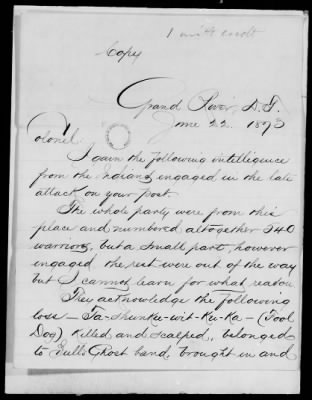 Copy
Grand River, D.T.
June 22. 1873
Colonel
I gain the following intelligence
from the Indians engaged in the late
attack on your post.
The whole party were from this
place and numbered altogether 240
warriors, but a small part, however
engaged the rest were out of the way
but I cannot learn for what reason
They acknowledge the following
loss — Ta-Shunka-wit-Ku-Ka — (Fool
Dog) Killed and scalped, belonged
to Gulls Ghost band, brought in and